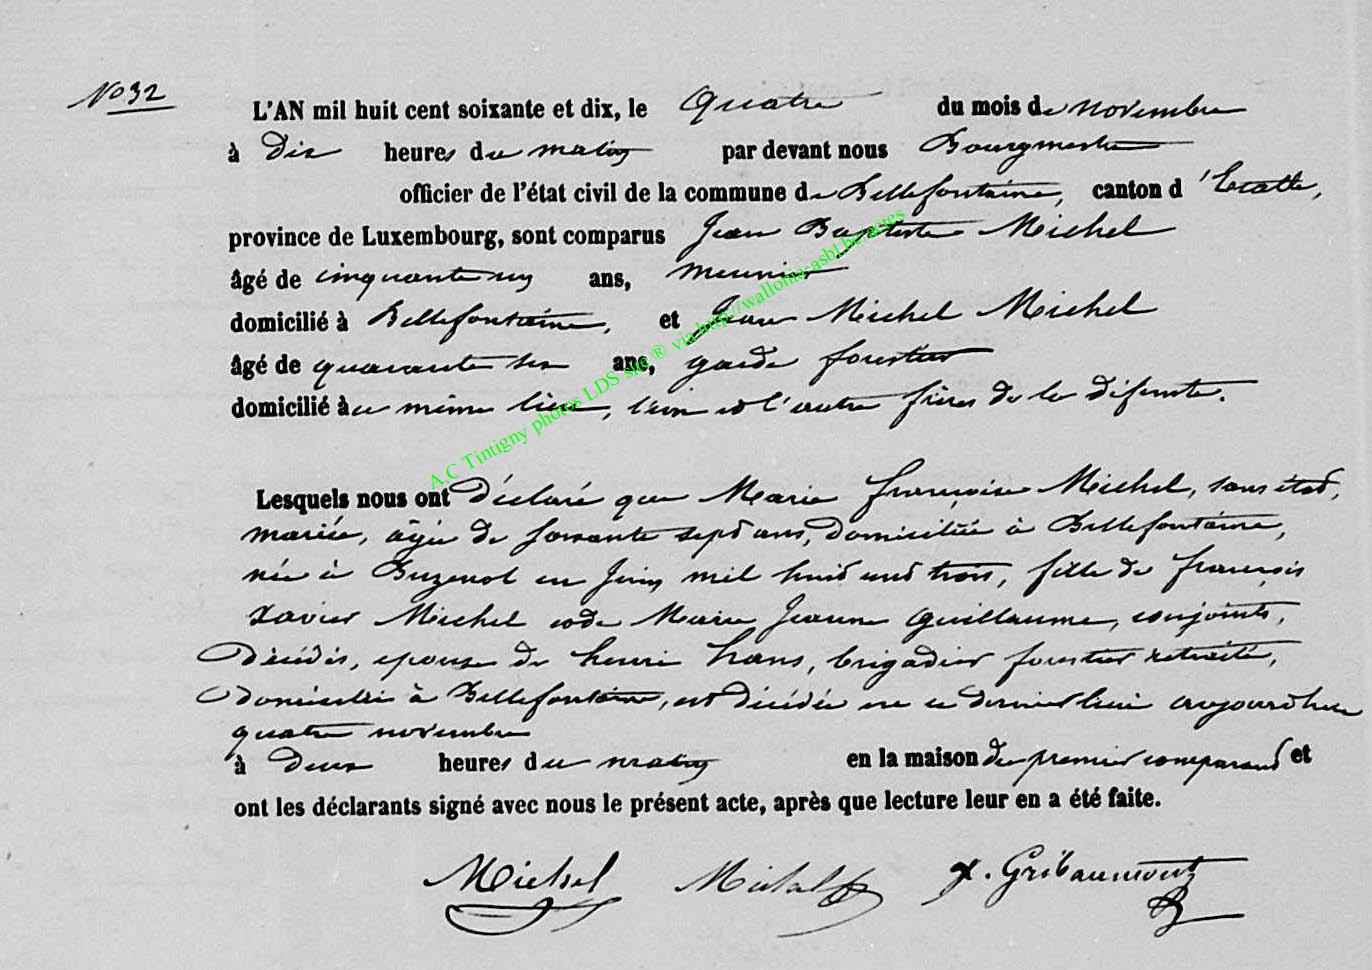 No 32
L'AN mil huit cent soixante et dix, le Quatre du mois de novembre
à Dix heures du matin par devant nous Bourgmestre
officier de l'état civil de la commune de Bellefontaine, canton d'Etalle,
province de Luxembourg, sont comparus Jean Baptiste Michel
âgé de cinquante un ans, meunier
domicilié à Bellefontaine, et Jean Michel Michel
âgé de quarante six ans, garde forestier
domicilié à ce même lieu, l'un et l'autre frères de la défunte.
Lesquels nous ont déclaré que Marie françoise Michel, sans état,
mariée, âgée de soixante sept ans, domiciliée à Bellefontaine,
née à Buzenol en Juin mil huit cent trois, fille de françois
Xavier Michel et de Marie Jeanne Guillaume, conjoints,
Décédés, epouse de henri hans, brigadier forestier retraité,
Domicilié à Bellefontaine, est décédée en ce dernier lieu aujourdhui
quatre novembre
à Deux heures du matin en la maison du premier comparant et
ont les déclarants signé avec nous le présent acte, après que lecture leur en a été faite.
Michel Michel x. Gribaumont
A.C Tintigny photos LDS site ® via http://wallonia-asbl.be/actes